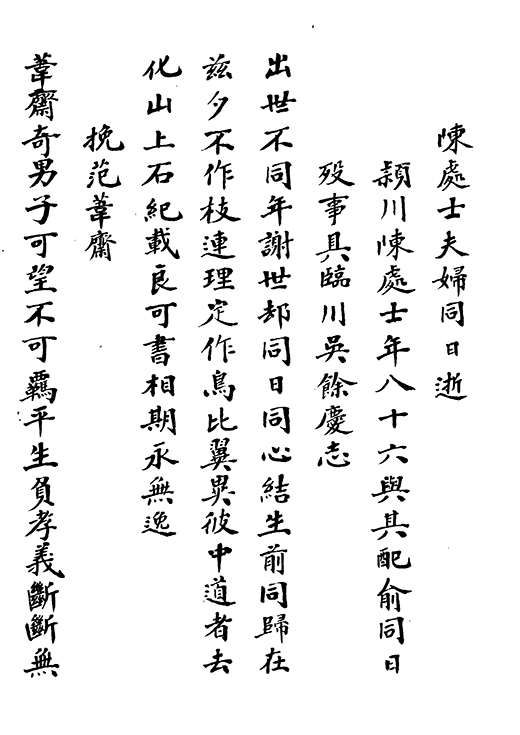 陳處士夫婦同日逝
潁川陳處士年八十六與其配俞同日
歿事具臨川吳餘慶志
出世不同年謝世却同日同心結生前同歸在
玆夕不作枝連理定作鳥比翼異彼中道者去
化山上石紀載良可書相期永無逸
挽范葦齋
葦齋奇男子可望不可羈平生負孝義斷斷無